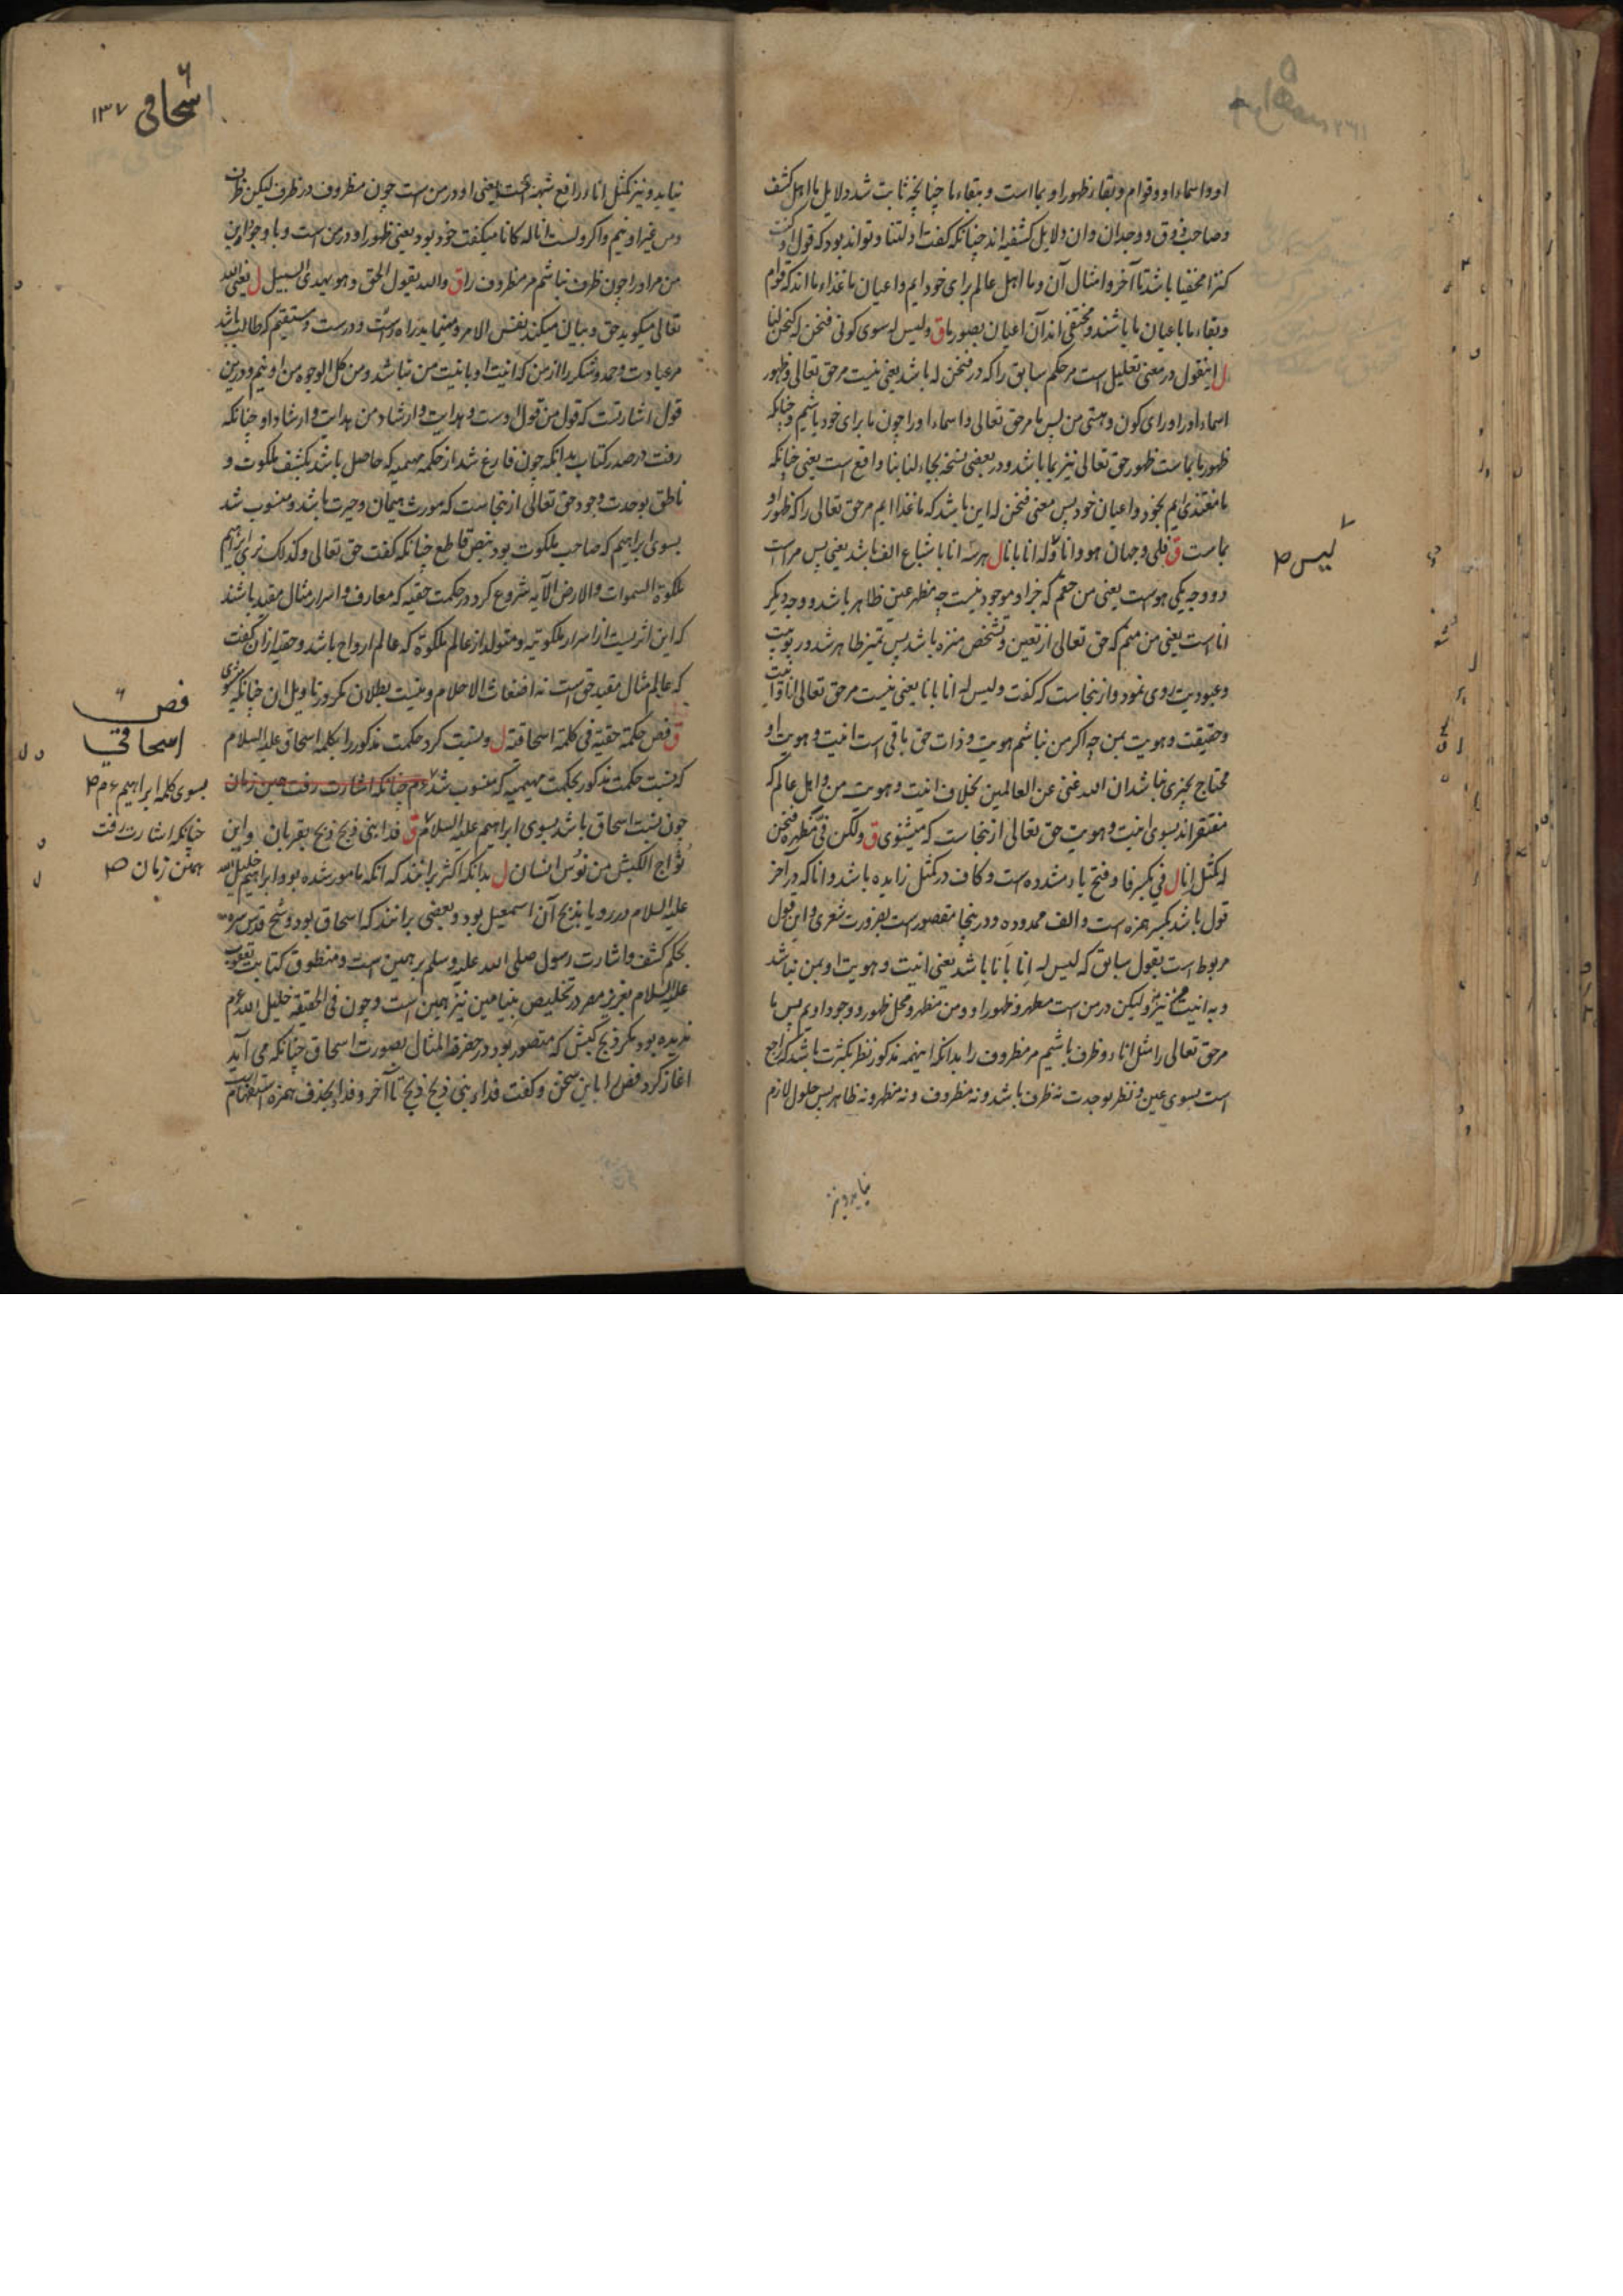 او و اسماء او و قوام و بقاء ظهور او بما است و بقاء ما چنانچه ثابت شد دلایل ما اهل کشف
و صاحب ذوق و وجدان و ان دلایل کشفیه اند چنانکه گفت ادلتنا و تواند بود که قول او کنت
کنزا مخفیا باشد تا آخر و امثال آن و ما اهل عالم برای خود ایم و اعیان ما غذاء ما اند که قوام
و بقاء ما باعیان ما باشند و مختفی اند آن اعیان بصور ما ق ولیس له سوی کونی فنحن له کنحن لنا
ل اینقول در معنی تعلیل است مر حکم سابق را که در فنحن له باشد یعنی نیست مر حق تعالی و ظهور
اسماء او را ورای کون و هستی من پس ما مر حق تعالی و اسماء او را چون ما برای خود باشیم و چنانکه
ظهور ما بماست ظهور حق تعالی نیز بما باشد و در بعضی نسخه بجاء لنا بنا واقع است یعنی چنانکه
ما مغتذی ایم بخود و اعیان خود پس معنی فنحن له این باشد که ما غذا ایم مر حق تعالی را که ظهور او
بماست ق فلی وجهان هو وانا وله انا بانا ل هر سه انا باشباع الف باشد یعنی پس مراست
دو وجه یکی هوست یعنی من حقم که جز او موجود نیست چه مظهر عین ظاهر باشد و وجه دیگر
انا است یعنی من منم که حق تعالی از تعین و تشخص منزه باشد پس تمیز ظاهر شد و ربوبیت
و عبودیت روی نمود و ازینجاست که گفت ولیس له انا بانا یعنی نیست مر حق تعالی انا و انیت
و حقیقت و هویت بمن چه اگر من نباشم هویت و ذات حق باقی است انیت و هویت او
محتاج بچیزی نباشد ان الله غنی عن العالمین بخلاف انیت و هویت من و اهل عالم که
مفتقر اند بسوی انیت و هویت حق تعالی ازینجاست که میشنوی ق ولکن فیّ مظهره فنحن
له کمثل انا ل فیّ بکسر فا و فتح یاء مشدده است و کاف در کمثل زایده باشد و انا که در آخر
قول باشد بکسر همزه است و الف ممدوده و درینجا مقصور است بضرورت شعری و این قول
مربوط است بقول سابق که لیس له انا بانا باشد یعنی انیت و هویت او بمن نباشد
و به انیت من نیز و لیکن در من است مظهر و ظهور او و من مظهر و محل ظهور و وجود اویم پس ما
مر حق تعالی را مثل اناء و ظرف باشیم مر مظروف را بدانکه اینهمه مذکور نظر بکثرت باشد که راجع
است بسوی عین و نظر بوحدت نه ظرف باشد و نه مظروف و نه مظهر و نه ظاهر پس حلول لازم
نیاید و نیز
لیس ص
۶
اسحاقی ۱۳۷
نیاید و نیز کمثل انا رافع شبهه است یعنی او در من است چون مظروف در ظرف لیکن ظرف
و من غیر او نیم و اگر ولست انا له کانا میگفت خود بود یعنی ظهور او در من است و با وجود این
من مر او را چون ظرف نباشم مر مظروف را ق والله یقول الحق وهو یهدی السبیل ل یعنی الله
تعالی میگوید حق و بیان میکند نفس الامر و مینماید راه راست و درست و مستقیم که طالب باشد
مر عبادت و حمد و شکر را از من که انیت او بانیت من نباشد و من کل الوجوه من او نیم و درین
قول اشارتست که قول من قول اوست و هدایت و ارشاد من هدایت و ارشاد او چنانکه
رفت در صدر کتاب بدانکه چون فارغ شد از حکمه مهیمیه که حاصل باشد بکشف ملکوت و
ناطق بوحدت وجود حق تعالی ازینجاست که مورث هیمان و حیرت باشد و منسوب شد
بسوی ابراهیم که صاحب ملکوت بود بنص قاطع چنانکه گفت حق تعالی وکذلک نری ابراهیم
ملکوة السموات والارض الآیه شروع کرد در حکمت حقیه که معارف و اسرار مثال مقید باشند
که این اثریست از اسرار ملکوتیه و متولد از عالم ملکوة که عالم ارواح باشد و حقیه از ان گفت
که عالم مثال مقید حق است نه اضغاث الاحلام و نیست بطلان مگر در تاویل ان چنانکه میشنوی
ق فص حکمة حقیة فی کلمة اسحاقیة ل و نسبت کرد حکمت مذکور را بکلمه اسحاق علیه السلام
که نسبت حکمت مذکور بحکمت مهیمیه که منسوب شد چنانکه اشارت رفت همین زبان
چون نسبت اسحاق باشد بسوی ابراهیم علیه السلام ق فداء نبی ذبح ذبح بقربان واین
ثؤاج الکبش من نوس انسان ل بدانکه اکثر برانند که آنکه مامور شده بود ابراهیم خلیل الله
علیه السلام در رویا بذبح آن اسمعیل بود و بعضی برانند که اسحاق بود و شیخ قدس سره
بحکم کشف و اشارت رسول صلی الله علیه وسلم بر همین است و منطوق کتابت یعقوب
علیه السلام بعزیز مصر در تخلیص بنیامین نیز همین است و چون فی الحقیقه خلیل الله عم
ندیده بود مگر ذبح کبش که متصور بود در حضرة المثال بصورت اسحاق چنانکه می آید
آغاز کرد فص را باین سخن و گفت فداء نبی ذبح ذبح تا آخر و فدا بحذف همزه استفهام است
فص ۶
اسحاقی
بسوی کلمه ابراهیم عم ص
چنانکه اشارت رفت
بهمین زبان ص